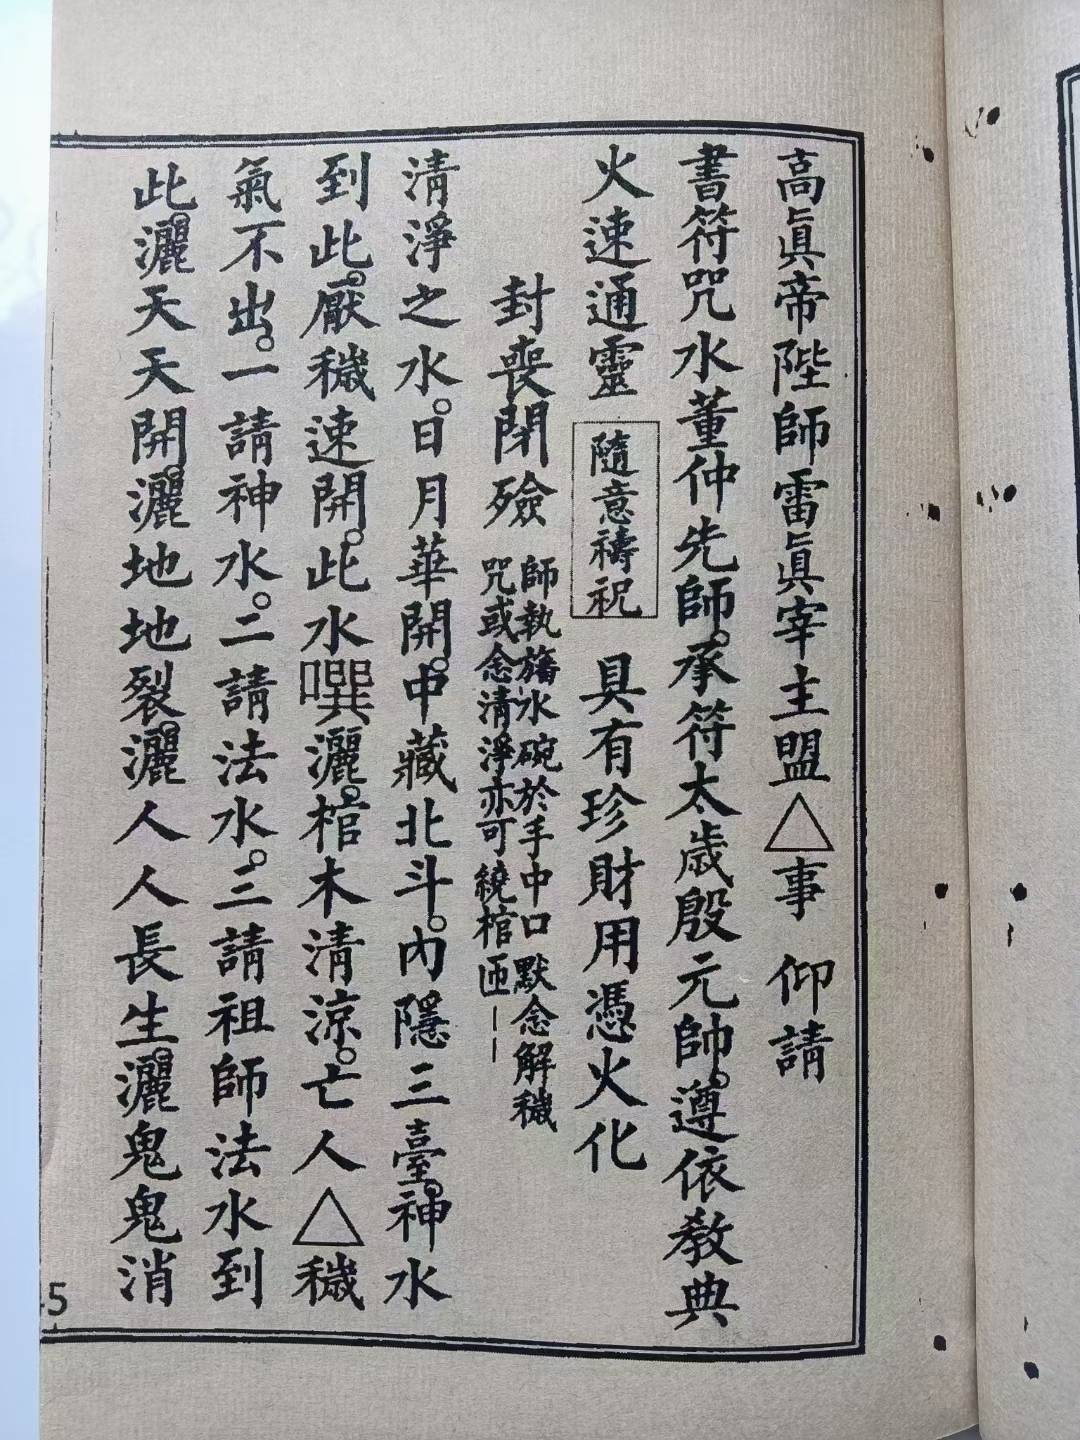 高眞帝陛師雷眞宰主盟△事 仰請
書符咒水董仲先師。承符太歲殷元帥。遵依教典
火速通靈 隨意禱祝 具有珍財用憑火化
封喪閉殮 師執旛水碗於手中口默念解穢
咒或念清淨亦可繞棺匝——
清淨之水。日月華開。中藏北斗。內隱三臺。神水
到此。厭穢速開。此水噀灑。棺木清涼。亡人△穢
氣不出。一請神水。二請法水。三請祖師法水到
此。灑天天開。灑地地裂。灑人人長生灑鬼鬼消
45